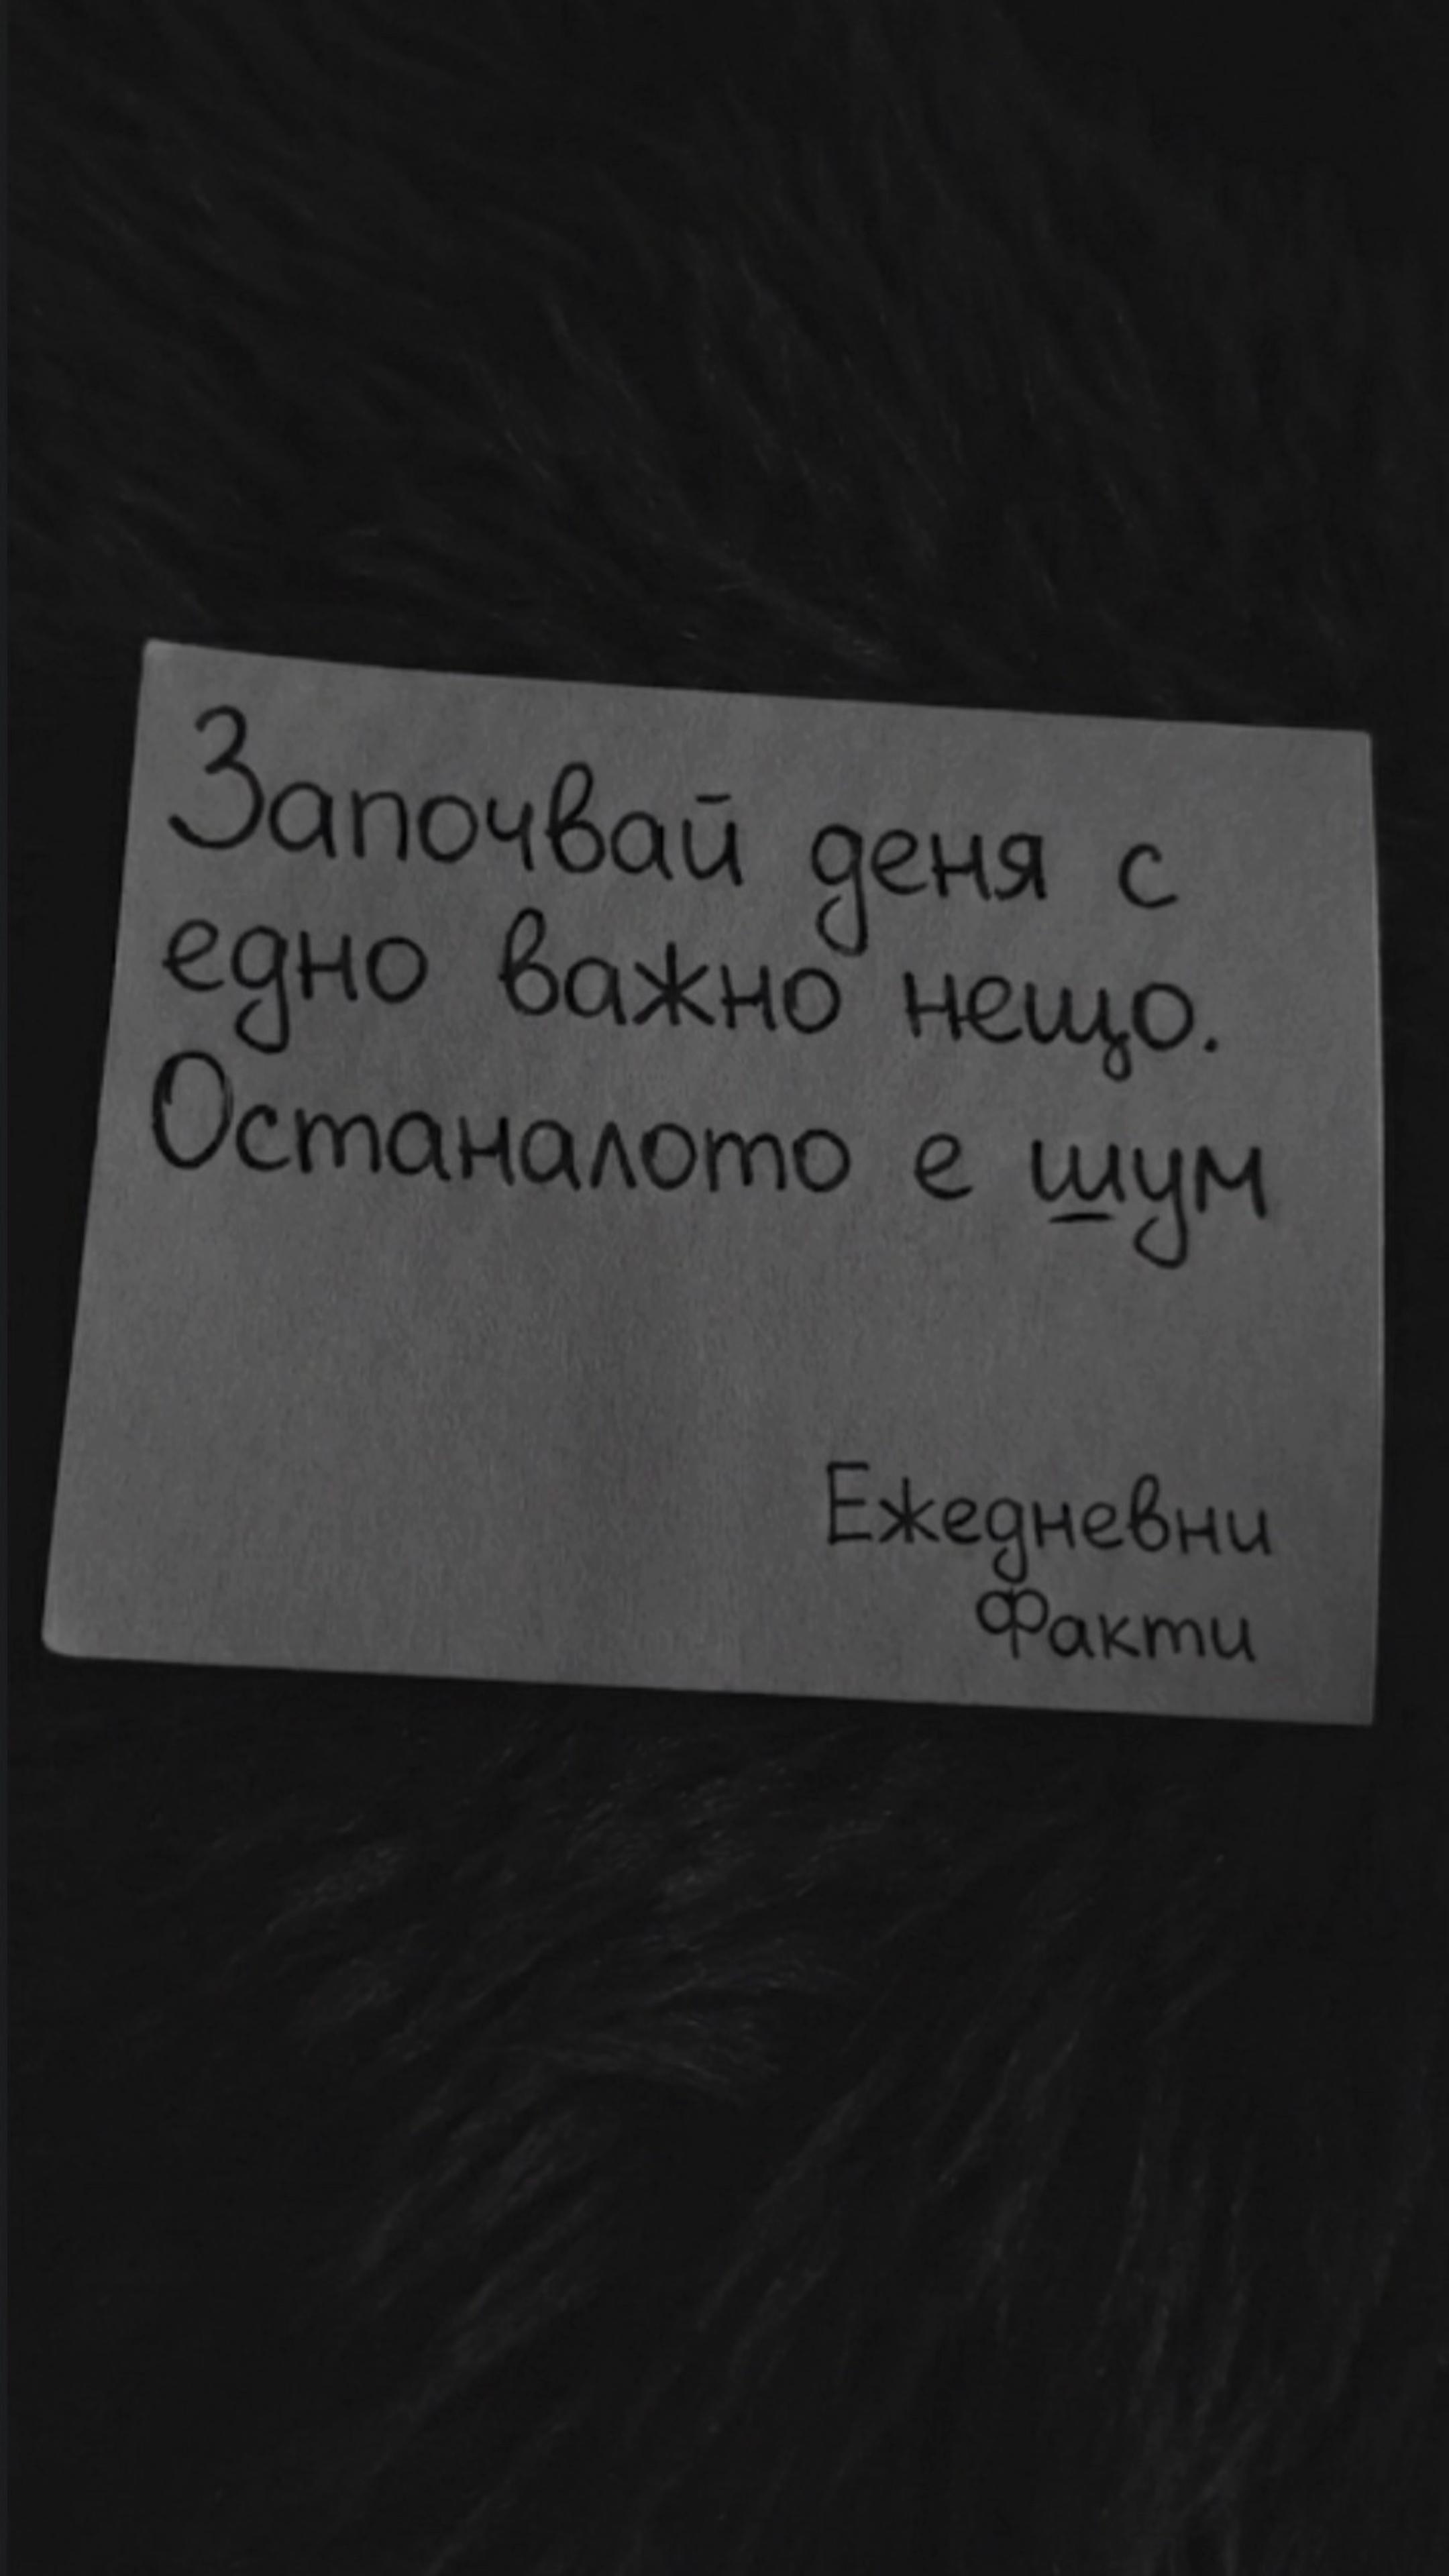 Започвай деня с
едно важно нещо.
Останалото е шум
Ежедневни
Факти